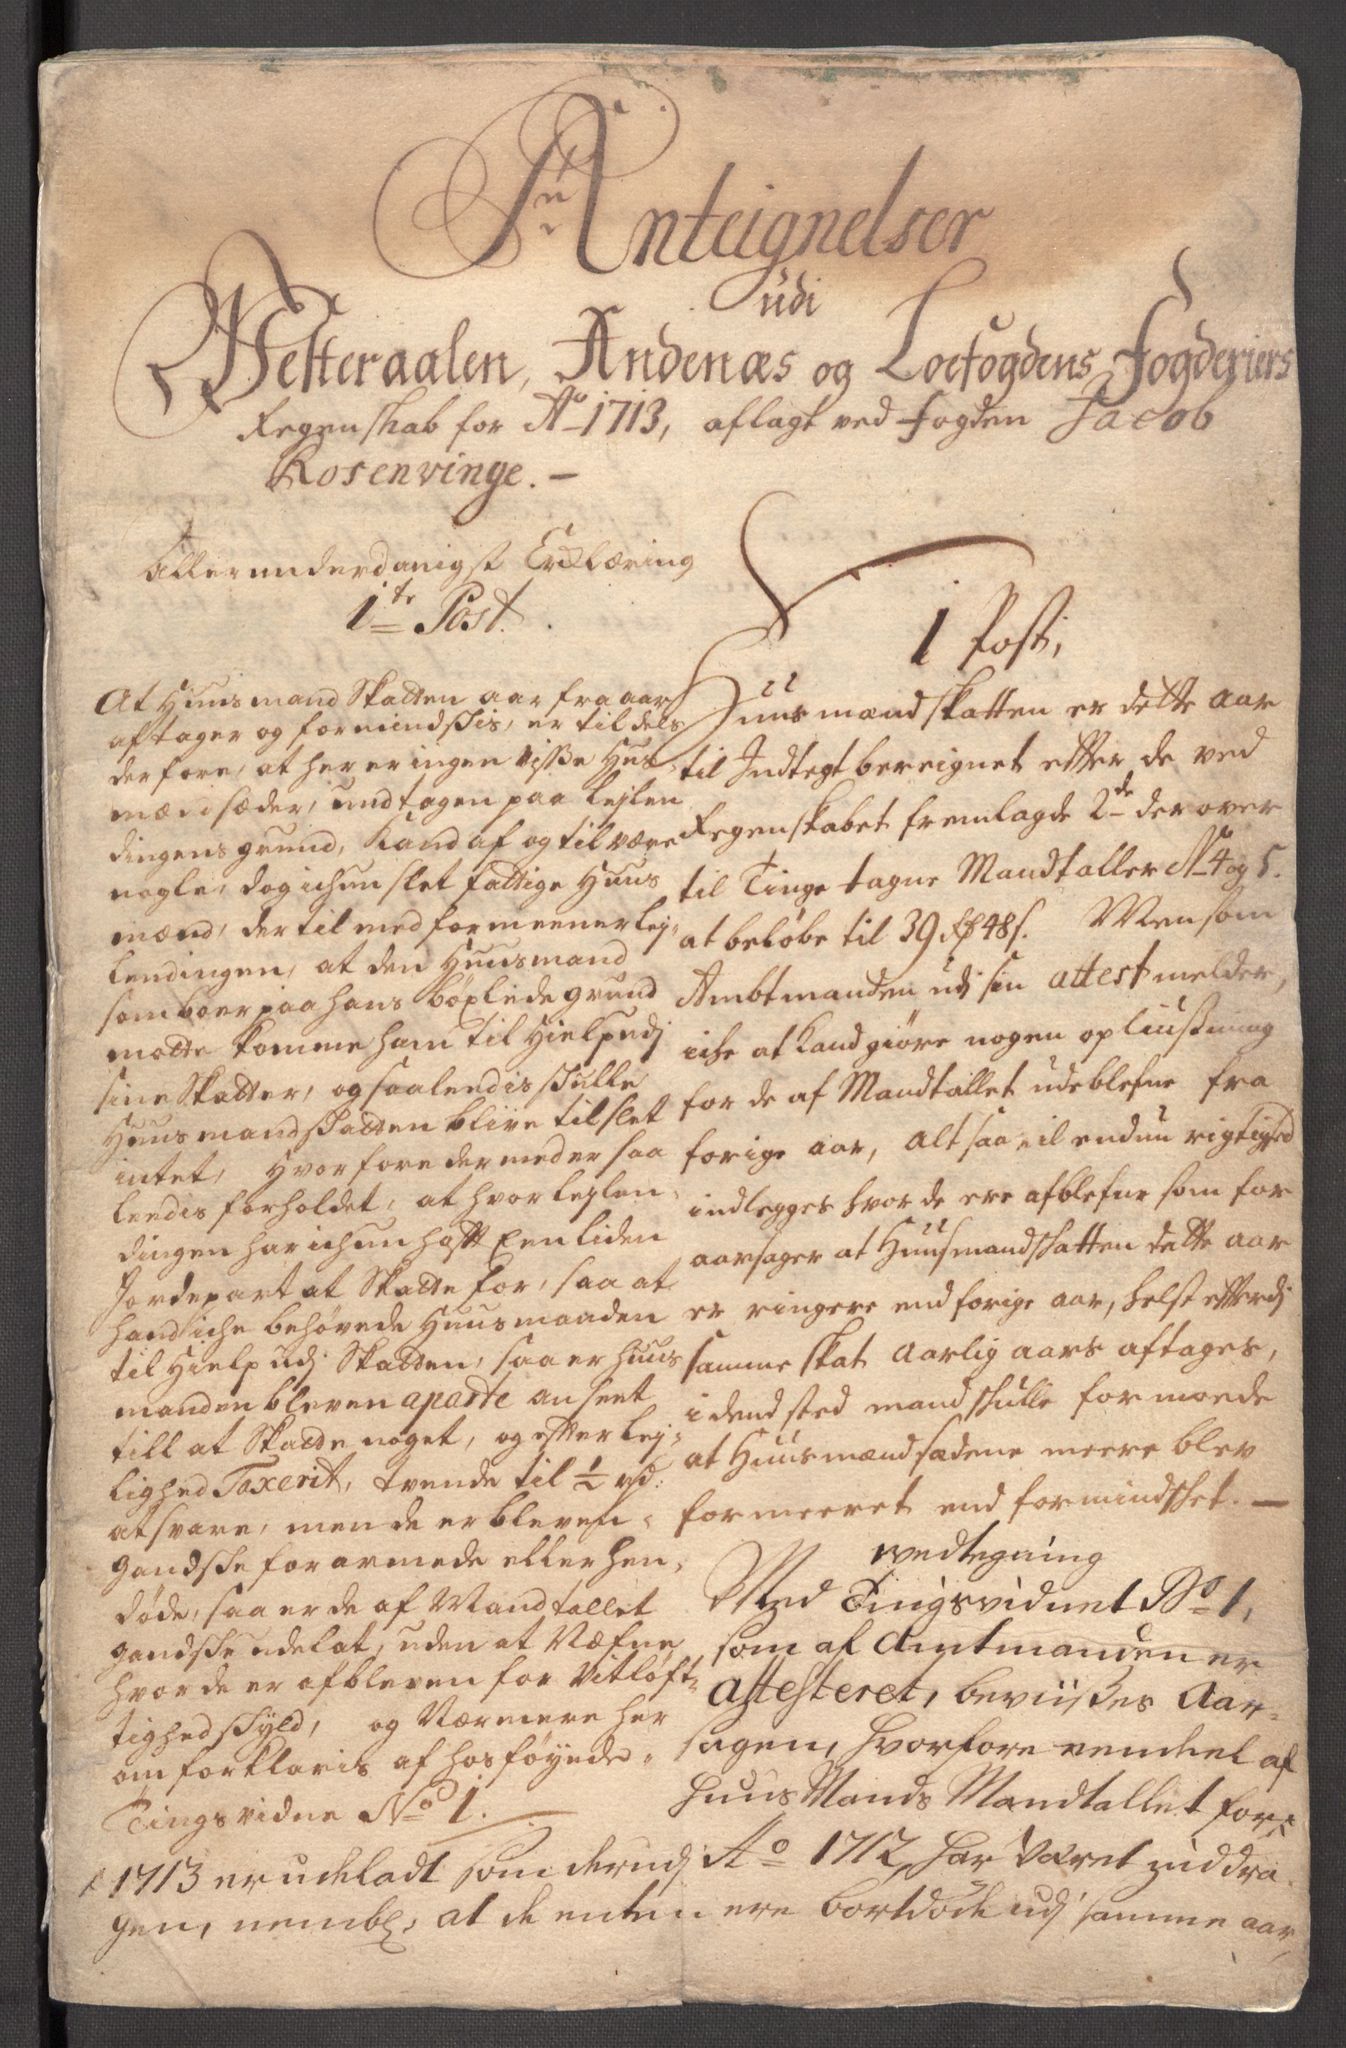 Anteignelser
udi
Westeraalen, Andenæs og Loefogdens Fogderiers
Regenskab for Ao 1713, aflagt ved fogden Jacob
Rosenvinge. -
Allerunderdanigst Erklæring
1te Post.
At Huusmand Skatten aar fra aar
aftager og formindskis, er til dels
derfore, at her er ingen visse Hus¬
mænd sæder, undtagen paa Lejlen
dingens grund, kand af og til være
nogle, dog ichun slet fattige Huus
mænd, dertil med formeener Lej¬
lendingen, at den Huusmand
som boer paa hans böxlede grund
motte komme ham til Hielp udj
sine Skatter, og saaledis skulle
Huusmandskatten blive til slet
intet, Hvorfore dermed er saa
ledis forholdet, at hvor Lejlen¬
dingen har ichun hafft een liden
Jordepart at Skatte for, saa at
hand iche behøvede Huusmanden
til Hielp udj Skatten, saa er huus
manden bleven aparte anseet
till at Skatte noget, og effter Lej¬
lighed Taxerit, trende til 1/2 rd.
at svare, men de er bleven
gandske forarmede eller hen¬
døde, saa er de af Mandtallet
gandske udelat, uden at Næfne
hvor de er afbleven for Vitløft¬
tighed skyld, og Nærmere her
om forklaris af hosføyede
Tingsvidne No 1.
1 Post,
Huusmandskatten er dette aar
til Indtegt bereignet effter de ved
Regenskabet fremlagde 2de derover
til Tinge tagne Mandtaller N 4 og 5.
at beløbe til 39 rd 48 s. Men som
Ambtmanden udj sin attest melder,
iche at kand giøre nogen opliusning
for de af Mandtallet udeblefne fra
forige aar, alt saa vil endnu rigtighed
indlegges hvor de ere afblefne som for
aarsager at Huusmandskatten dette aar
er ringere end forige aar, helst efftersdj
samme skat aarlig aars aftages,
i dend sted mand skulle formoede
at Huusmændsædene meere blev
formeeret end formindsket. —
wedtegning
Med Tingsvidnet No 1,
som af Amtmanden er
attesteret, beviises Aar¬
sagen, hvorfore eendeel af
Huus Mands Mandtallet for
1713 er udeladt som derudj Ao 1712 har været inddra
gen, nembl. at de enten ere bortdøde udj samme aar,